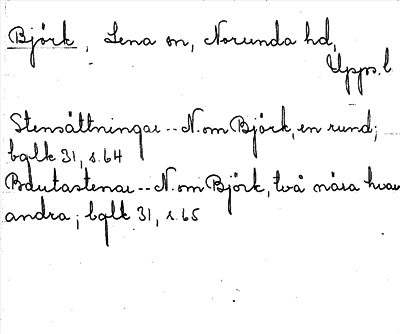 Björk, Lena sn, Norunda hd,
Upps. l
Stensättningar -- N. om Björk, en rund;
bglk 31, s. 64
Bautastenar -- N. om Björk, två nära hvar
andra; bglk 31, s. 65